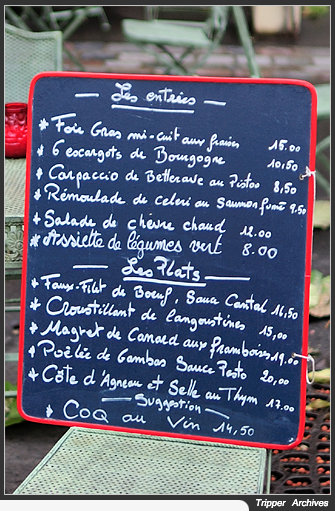 Les entrées
* Foie Gras mi-cuit aux fraises 15.00
* 6 escargots de Bourgogne 10,50
* Carpaccio de Betterave au Pistou 8,50
* Rémoulade de céleri au Saumon fumé 9.50
* Salade de chèvre chaud 12.00
* Assiette de légumes vert 8.00
Les Plats
* Faux-Filet de Boeuf, Sauce Cantal 16,50
* Croustillant de langoustines 15,00
* Magret de Canard aux framboises 19,00
* Poêlée de Gambas Sauce Pesto 20,00
* Côte d'Agneau et Selle au Thym 17.00
Suggestion
* Coq au Vin 14,50
Tripper Archives